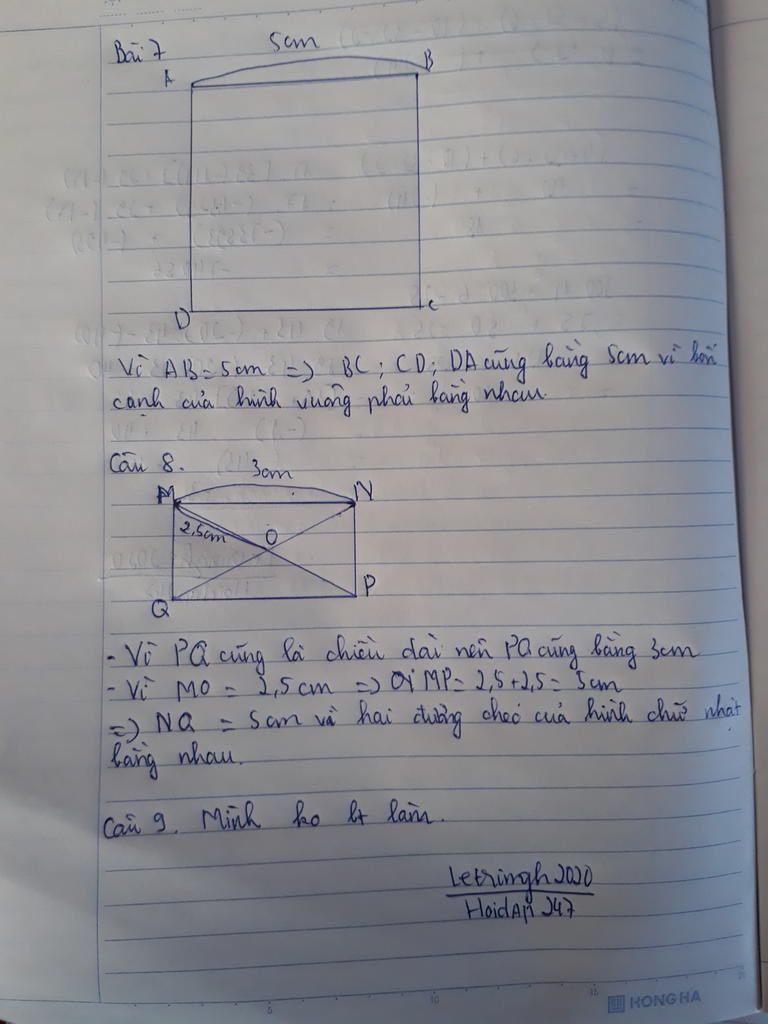 Bài 7
5cm
A
B
D
C
Vì AB = 5cm => BC ; CD ; DA cũng bằng 5cm vì bốn
cạnh của hình vuông phải bằng nhau.
Câu 8.
3cm
M
N
2,5cm
O
Q
P
- Vì PQ cũng là chiều dài nên PQ cũng bằng 3cm
- Vì MO = 2,5cm => MP = 2,5 + 2,5 = 5cm
=> NQ = 5cm vì hai đường chéo của hình chữ nhật
bằng nhau.
Câu 9. Mình ko bt làm.
Letringh2020
HoidAp 247
HONG HA
5
10
15